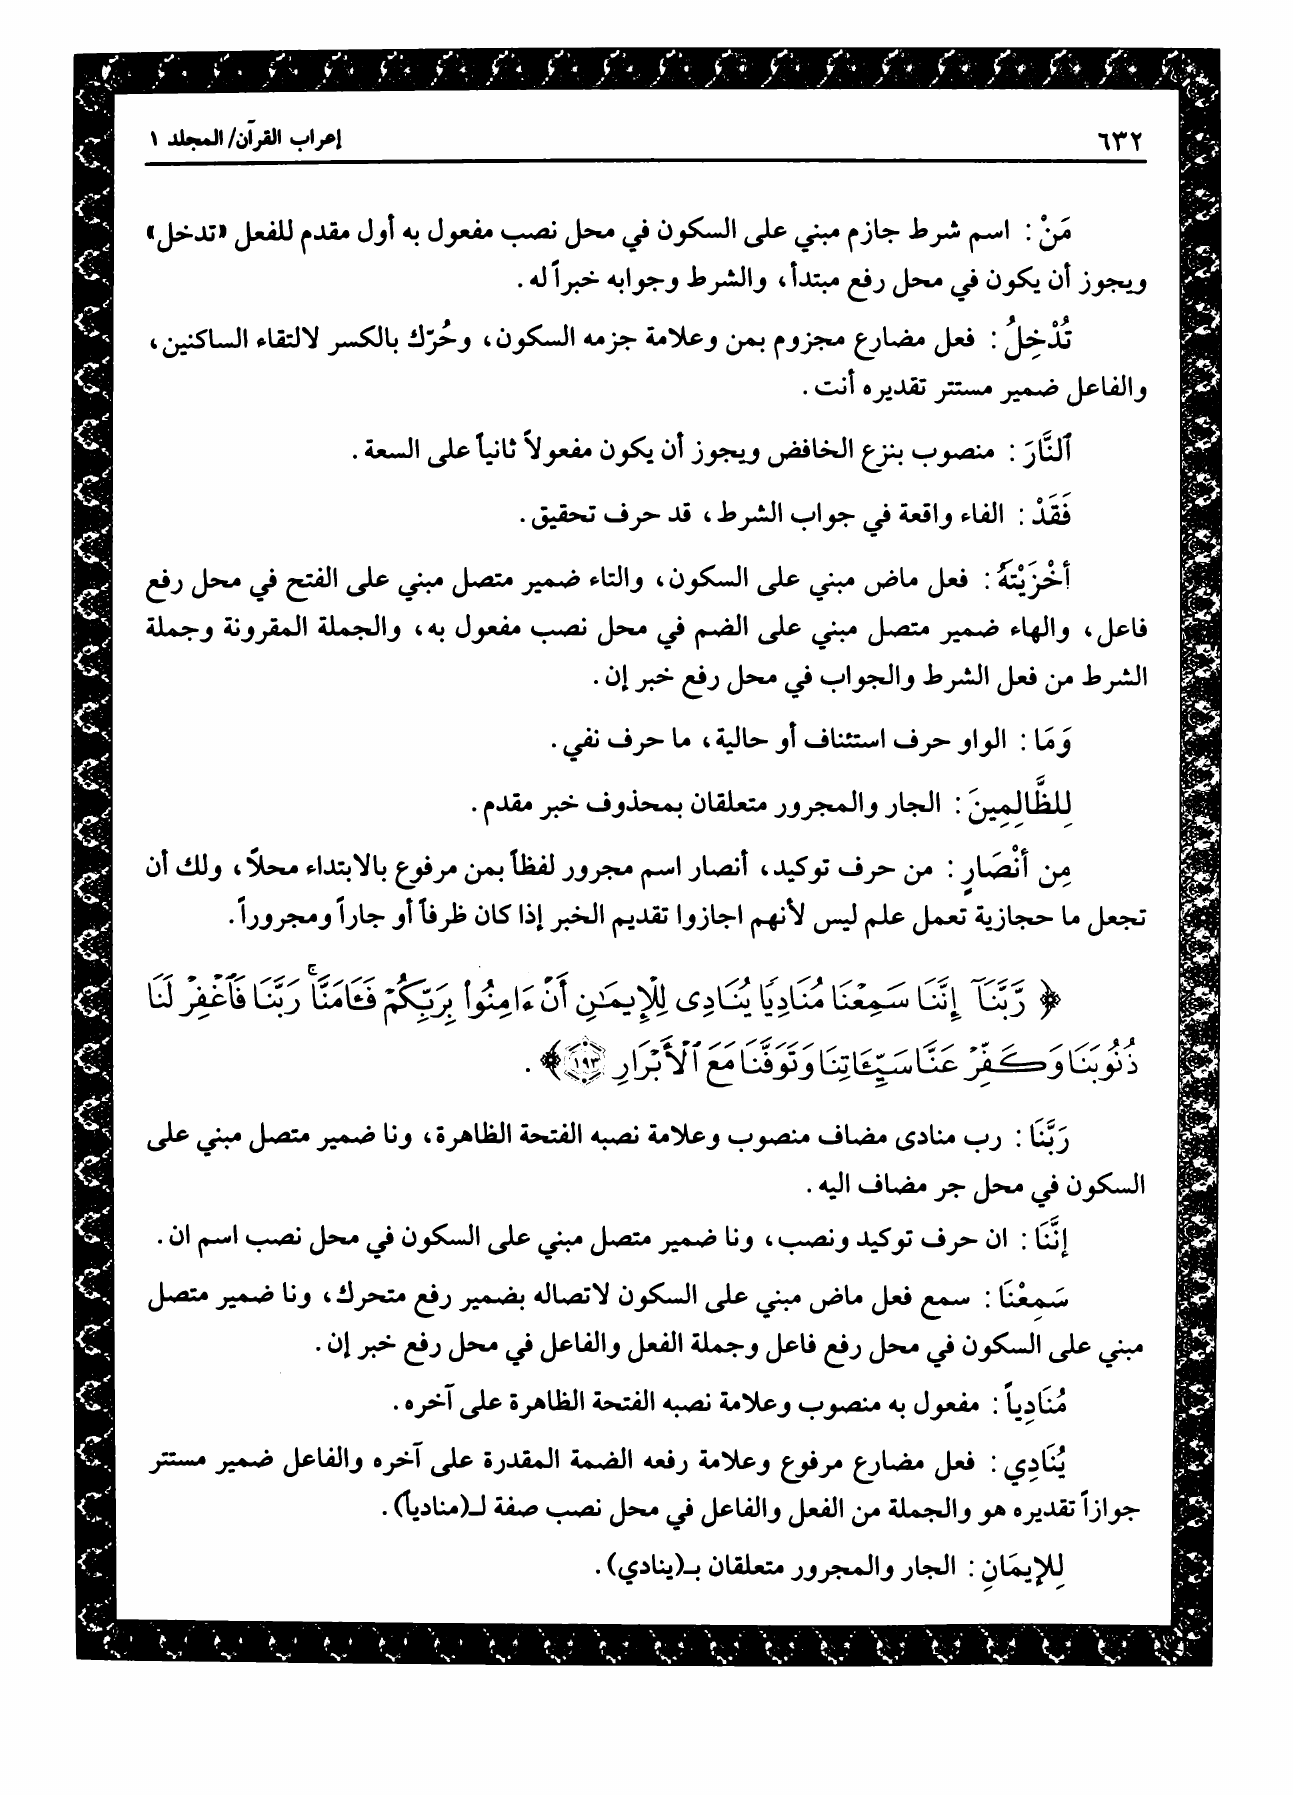 ٦٣٢
إعراب القرآن/ المجلد ١
مَنْ : اسم شرط جازم مبني على السكون في محل نصب مفعول به أول مقدم للفعل «تدخل»
ويجوز أن يكون في محل رفع مبتدأ، والشرط وجوابه خبراً له .
تُدْخِلُ : فعل مضارع مجزوم بمن وعلامة جزمه السكون، وحُرّك بالكسر لالتقاء الساكنين،
والفاعل ضمير مستتر تقديره أنت .
ٱلنَّارَ : منصوب بنزع الخافض ويجوز أن يكون مفعولاً ثانياً على السعة .
فَقَدْ : الفاء واقعة في جواب الشرط، قد حرف تحقيق .
أخْزَيْتَهُ : فعل ماض مبني على السكون، والتاء ضمير متصل مبني على الفتح في محل رفع
فاعل، والهاء ضمير متصل مبني على الضم في محل نصب مفعول به، والجملة المقرونة وجملة
الشرط من فعل الشرط والجواب في محل رفع خبر إن .
وَمَا : الواو حرف استئناف أو حالية، ما حرف نفي .
لِلظَّالِمِينَ : الجار والمجرور متعلقان بمحذوف خبر مقدم .
مِن أنْصَارٍ : من حرف توكيد، أنصار اسم مجرور لفظاً بمن مرفوع بالابتداء محلاً، ولك أن
تجعل ما حجازية تعمل علم ليس لأنهم اجازوا تقديم الخبر إذا كان ظرفاً أو جاراً ومجروراً .
﴿ رَّبَّنَآ إِنَّنَا سَمِعْنَا مُنَادِيًا يُنَادِى لِلْإِيمَٰنِ أَنْ ءَامِنُوا۟ بِرَبِّكُمْ فَـَٔامَنَّا ۚ رَبَّنَا فَٱغْفِرْ لَنَا
ذُنُوبَنَا وَكَفِّرْ عَنَّا سَيِّـَٔاتِنَا وَتَوَفَّنَا مَعَ ٱلْأَبْرَارِ ١٩٣ ﴾ .
رَبَّنَا : رب منادى مضاف منصوب وعلامة نصبه الفتحة الظاهرة، ونا ضمير متصل مبني على
السكون في محل جر مضاف اليه .
إنَّنَا : ان حرف توكيد ونصب، ونا ضمير متصل مبني على السكون في محل نصب اسم ان .
سَمِعْنَا : سمع فعل ماض مبني على السكون لاتصاله بضمير رفع متحرك، ونا ضمير متصل
مبني على السكون في محل رفع فاعل وجملة الفعل والفاعل في محل رفع خبر إن .
مُنَادِياً : مفعول به منصوب وعلامة نصبه الفتحة الظاهرة على آخره .
يُنَادِي : فعل مضارع مرفوع وعلامة رفعه الضمة المقدرة على آخره والفاعل ضمير مستتر
جوازاً تقديره هو والجملة من الفعل والفاعل في محل نصب صفة لـ(منادياً) .
لِلإيمَانِ : الجار والمجرور متعلقان بـ(ينادي) .